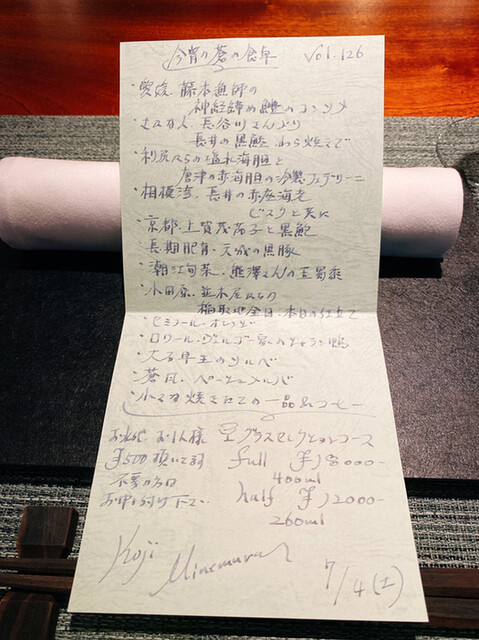 今宵の蒼の食卓 Vol.126
・愛媛 藤本漁師の
神経締め鱧のコンソメ
名人 長谷川さんより
長井の黒鮑 わら焼きで
・利尻 塩水海胆と
唐津の赤海胆の冷製カッペリーニ
・相模湾 長井の赤座海老
ビスクと共に
・京都 上賀茂茄子と黒鮑
・長期肥育 天城の黒豚
・潮江旬菜 熊澤さんの玉蜀黍
・小田原
稲取地金目 本日の仕立て
・セミノール オレンジ
・ロワール シャラン鴨
・大石早生のソルベ
・蒼凪 ペーシュメルバ
焼きたての一品&コーヒー
お水代 お1人様 グラスセレクションコース
¥500頂いて full ¥18000-
不要の方 400ml
お申し付け下さい half ¥12000-
260ml
Koji
Minemura
7/4(土)